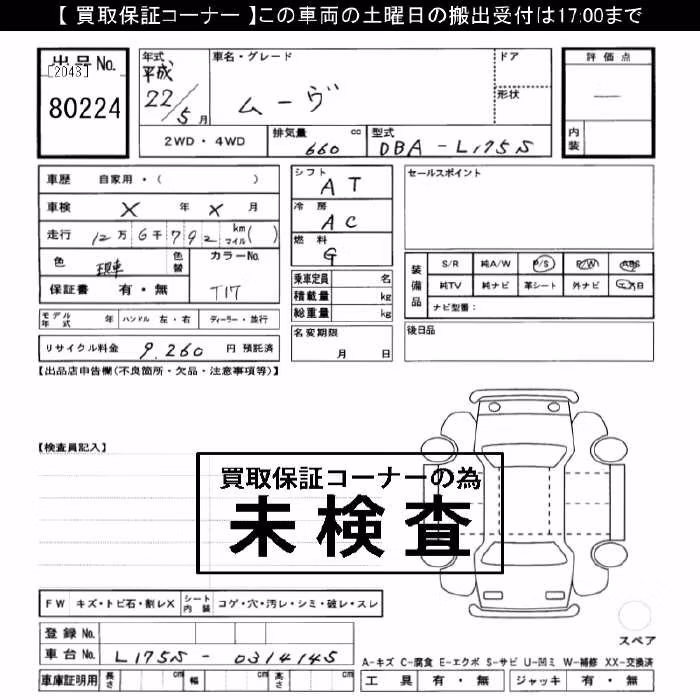 【 買取保証コーナー 】この車両の土曜日の搬出受付は17:00まで
出品No. [2043] 80224
年式 平成 22/5月
車名・グレード ムーヴ
ドア
形状
評価点 —
内装
2WD・4WD
排気量 660 cc
型式 DBA-L175S
車歴 自家用・( )
車検 X 年 X 月
走行 12万6千792 km マイル( )
色 現車 色替
カラーNo. T17
保証書 有・無
モデル年式 年 ハンドル 左・右 ディーラー・並行
リサイクル料金 9,260 円 預託済
シフト AT
冷房 AC
燃料 G
乗車定員 名
積載量 kg
総重量 kg
名変期限 月 日
セールスポイント
装備品 S/R 純A/W P/S P/W ABS
純TV 純ナビ 革シート 外ナビ
ナビ型番:
後日品
【出品店申告欄(不良箇所・欠品・注意事項等)】
【検査員記入】
買取保証コーナーの為
未検査
FW キズ・トビ石・割レX シート内装 コゲ・穴・汚レ・シミ・破レ・スレ
登録No.
車台No. L175S-0314145
車庫証明用 長さ cm 幅 cm 高さ cm
スペア
A-キズ C-腐食 E-エクボ S-サビ U-凹ミ W-補修 XX-交換済
工具 有・無 ジャッキ 有・無